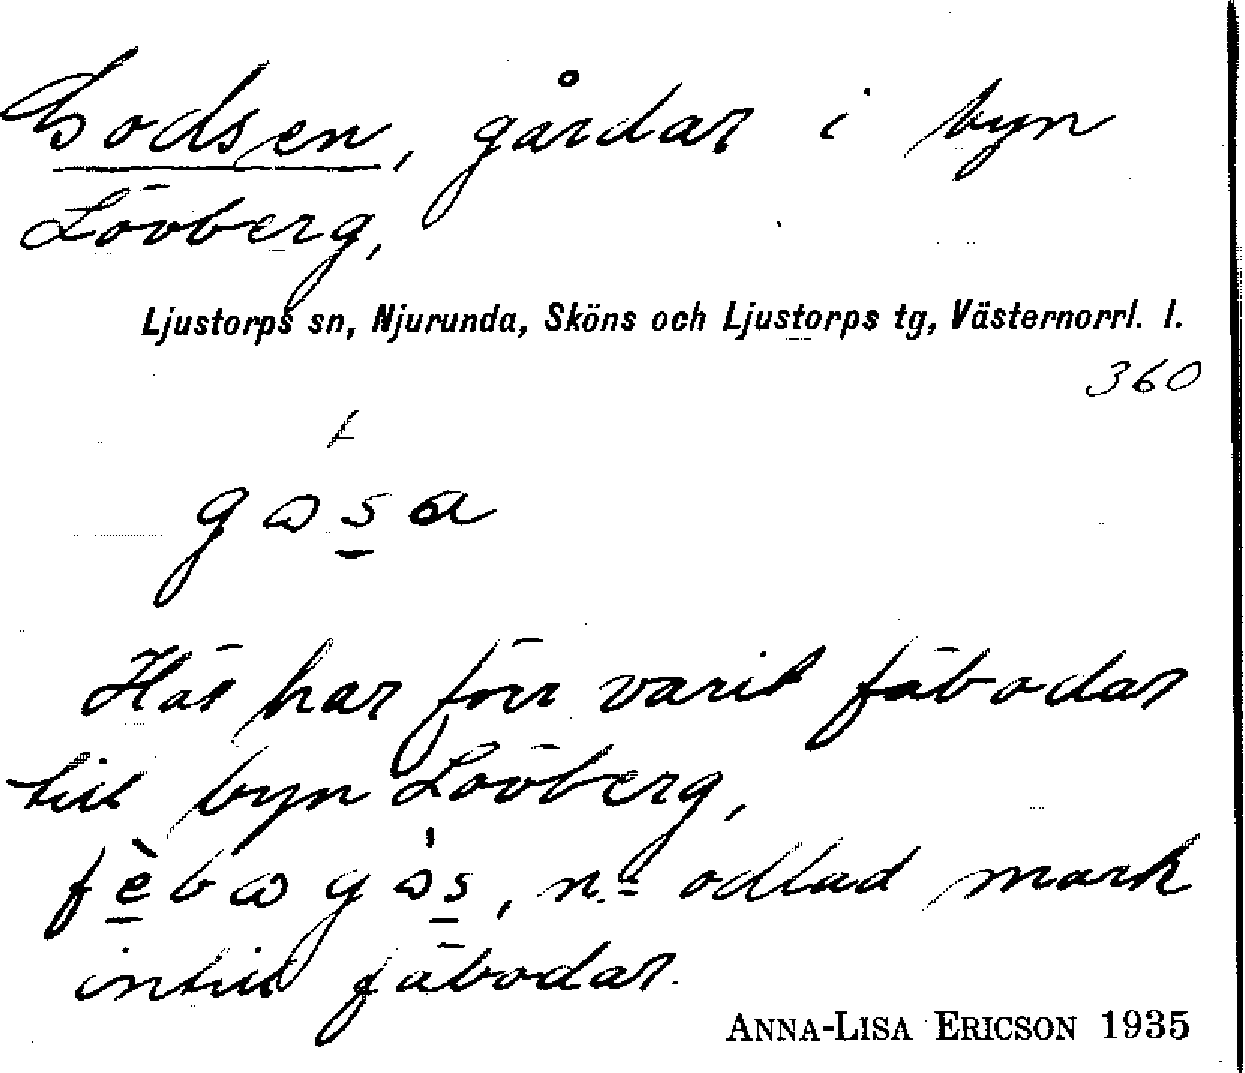 Godsen, gårdar i byn
Lövberg,
Ljustorps sn, Njurunda, Sköns och Ljustorps tg, Västernorrl. l.
360
Här har förr varit fäbodar
till byn Lövberg,
n. = odlad mark
intill fäbodar.
ANNA-LISA ERICSON 1935